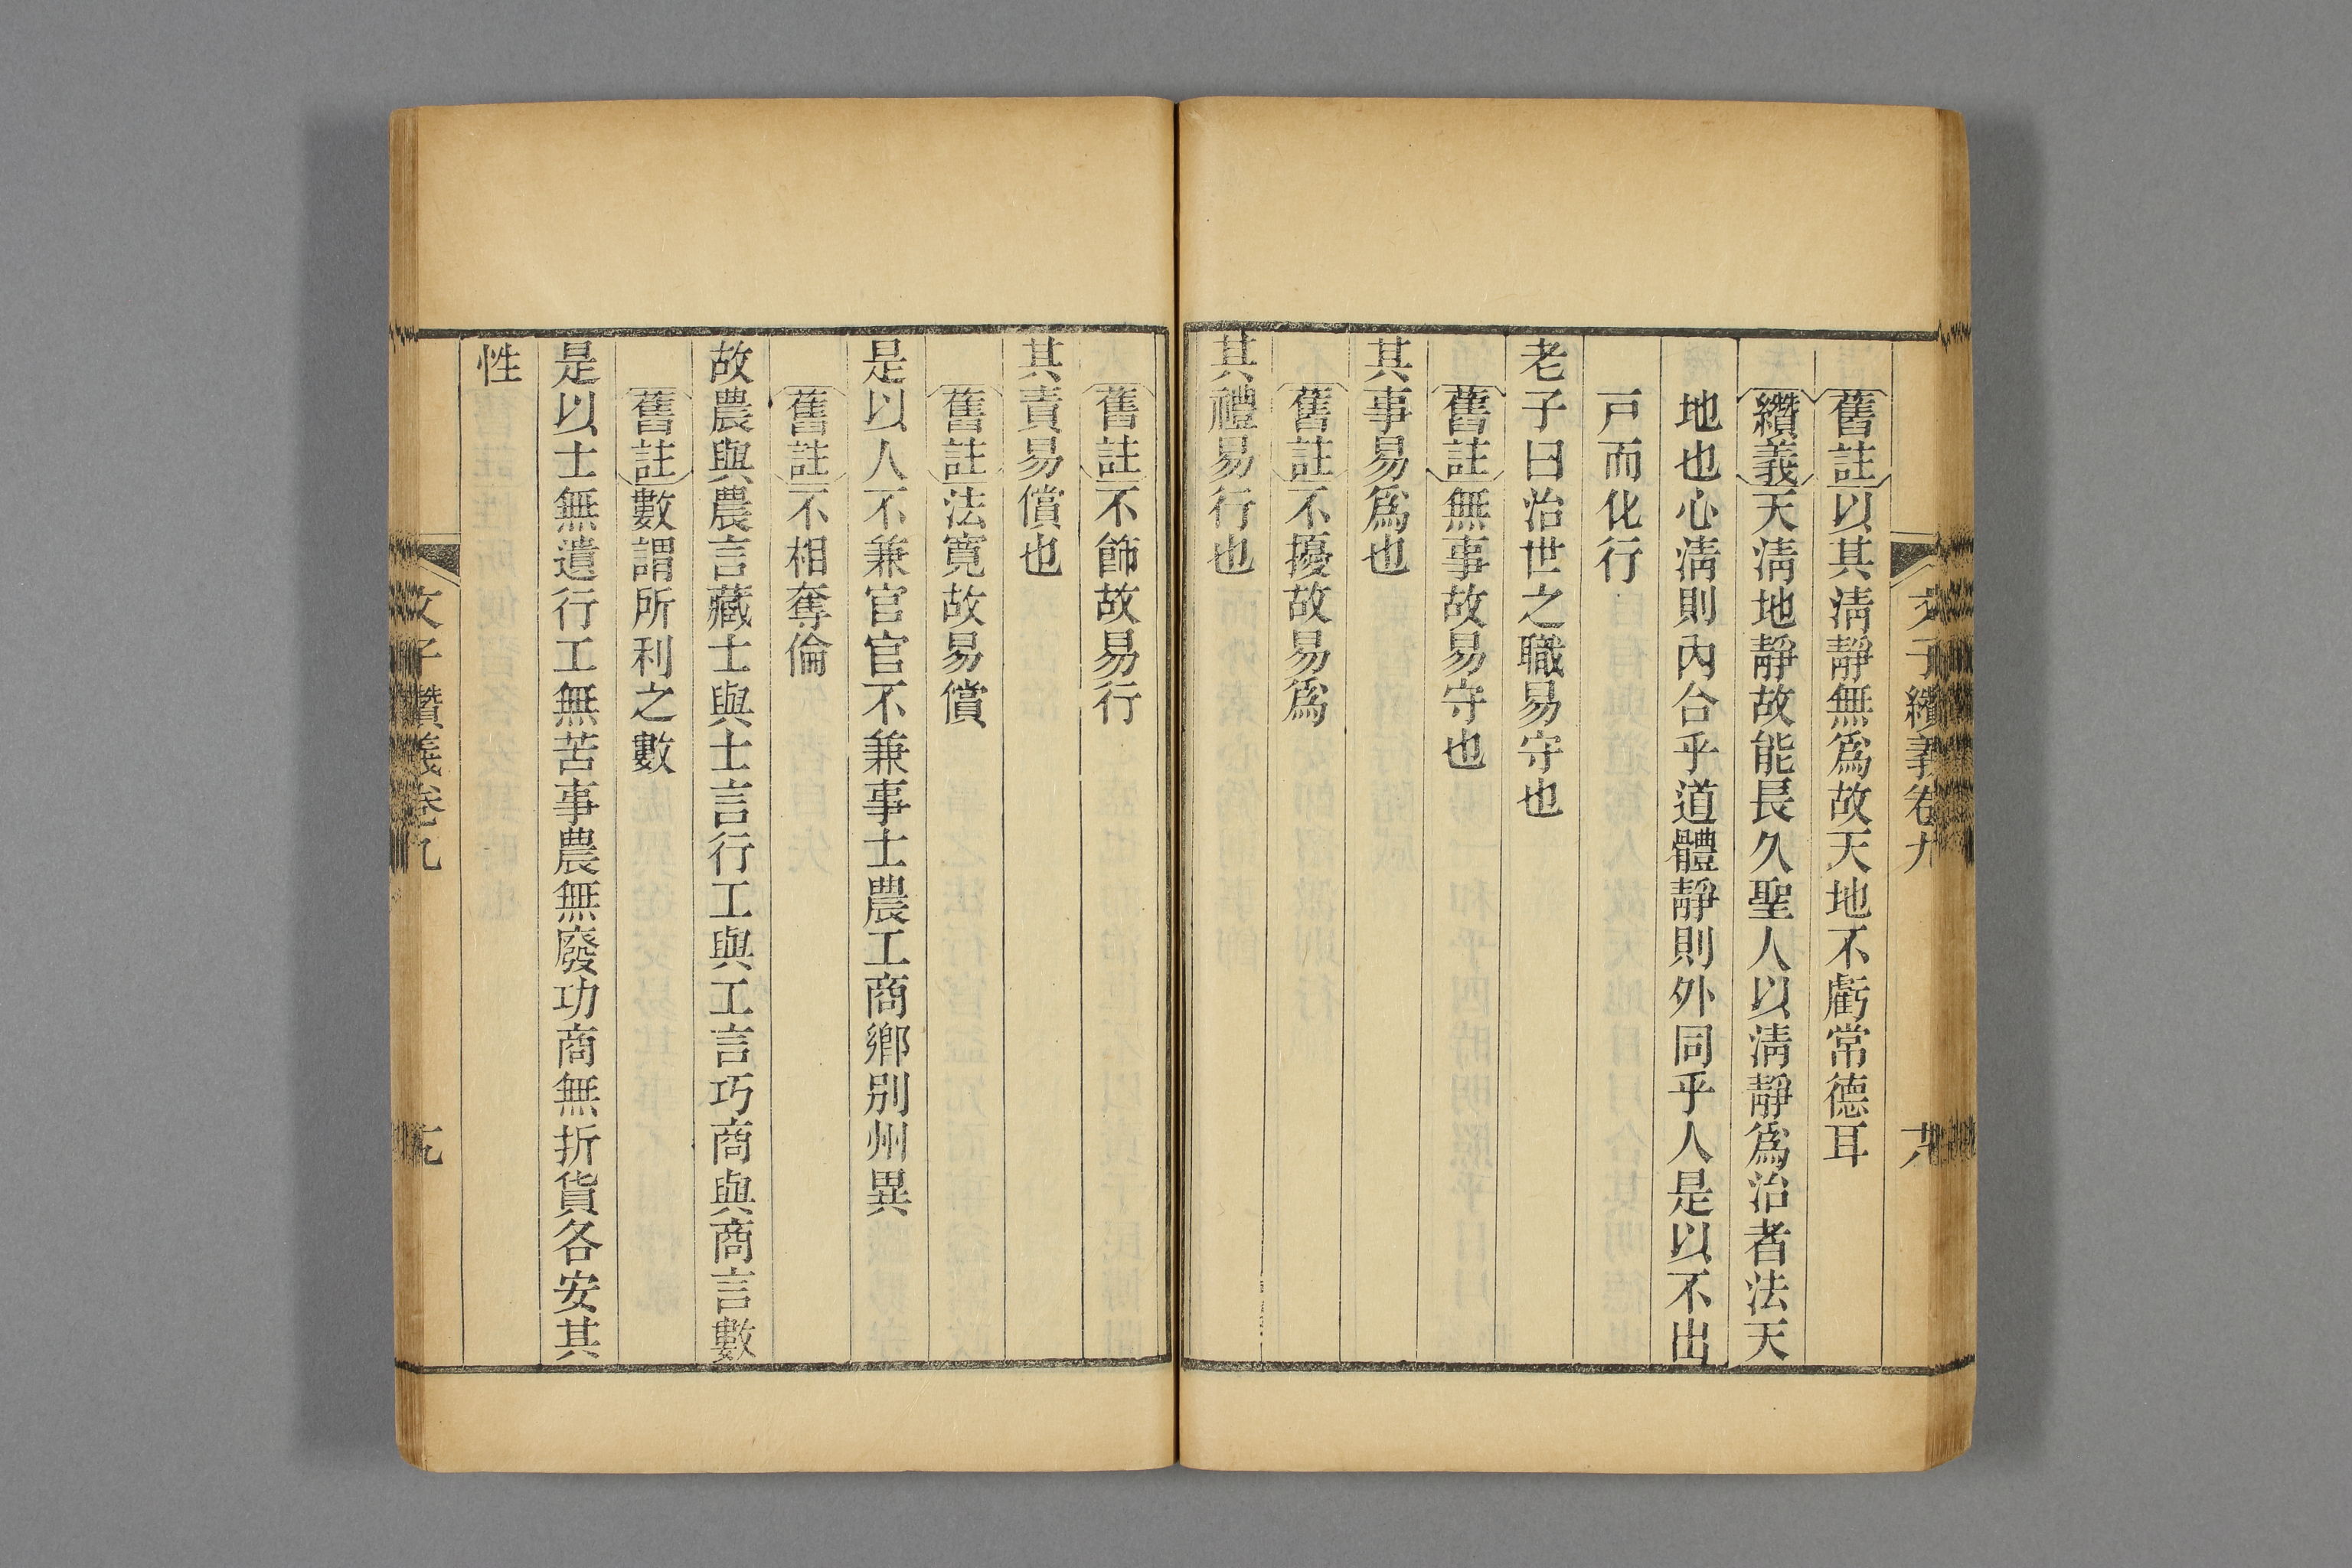 文子纘義卷九
六
舊註以其淸靜無爲故天地不虧常德耳
纘義天淸地靜故能長久聖人以淸靜爲治者法天
地也心淸則內合乎道體靜則外同乎人是以不出
戸而化行
老子曰治世之職易守也
舊註無事故易守也
其事易爲也
舊註不擾故易爲
其禮易行也
舊註不飾故易行
其責易償也
舊註法寛故易償
是以人不兼官官不兼事士農工商鄉別州異
舊註不相奪倫
故農與農言藏士與士言行工與工言巧商與商言數
舊註數謂所利之數
是以士無遺行工無苦事農無廢功商無折貨各安其
性
文子纘義卷九